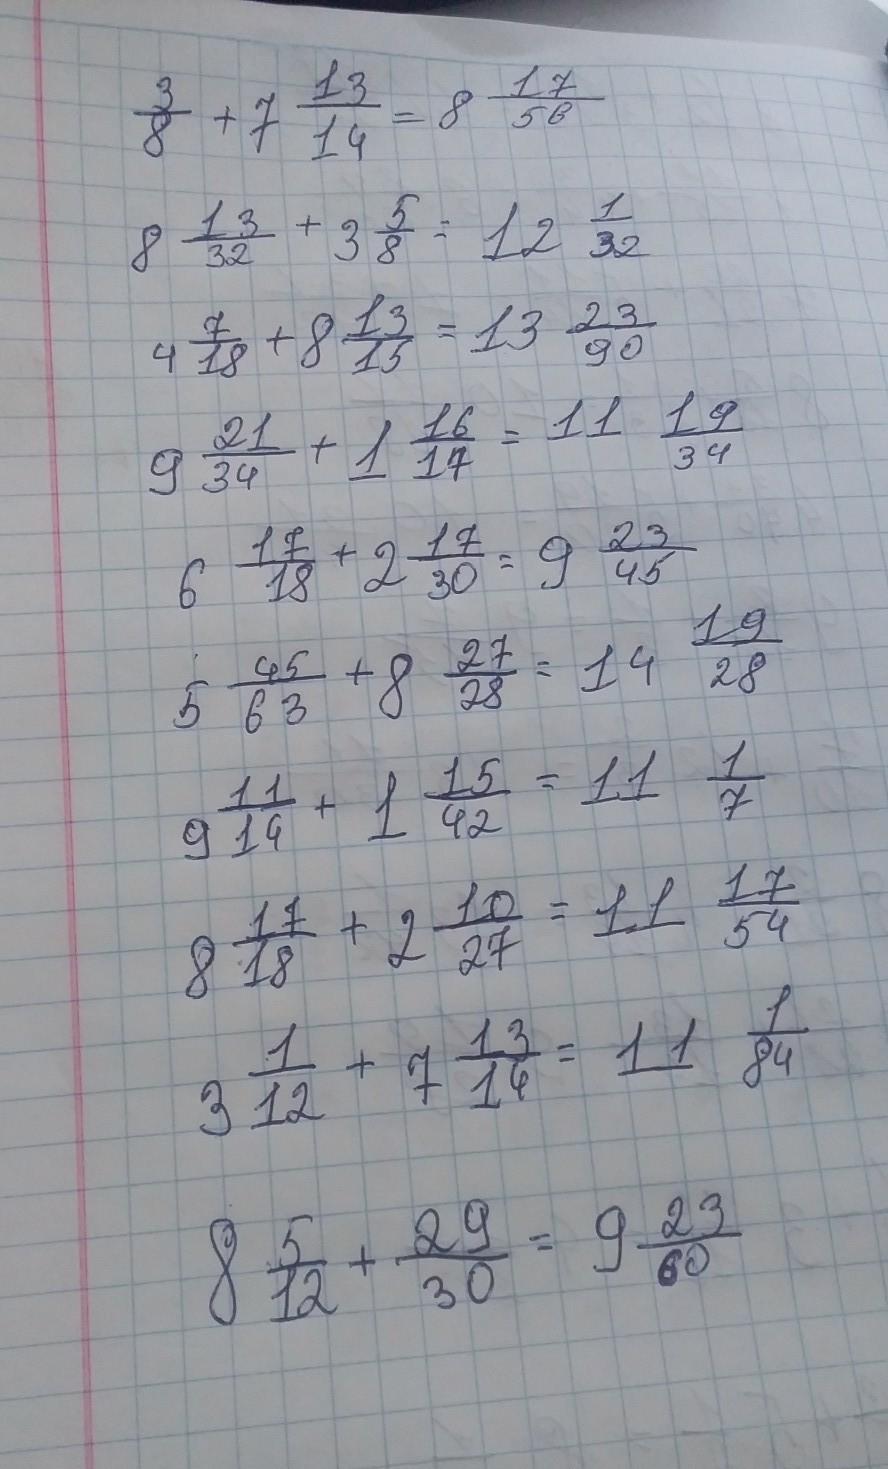 3/8 + 7 13/14 = 8 17/56
8 13/32 + 3 5/8 = 12 1/32
4 7/18 + 8 13/15 = 13 23/90
9 21/34 + 1 16/17 = 11 19/34
6 17/18 + 2 17/30 = 9 23/45
5 45/63 + 8 27/28 = 14 19/28
9 11/14 + 1 15/42 = 11 1/7
8 17/18 + 2 10/27 = 11 17/54
3 1/12 + 7 13/14 = 11 1/84
8 5/12 + 29/30 = 9 23/60